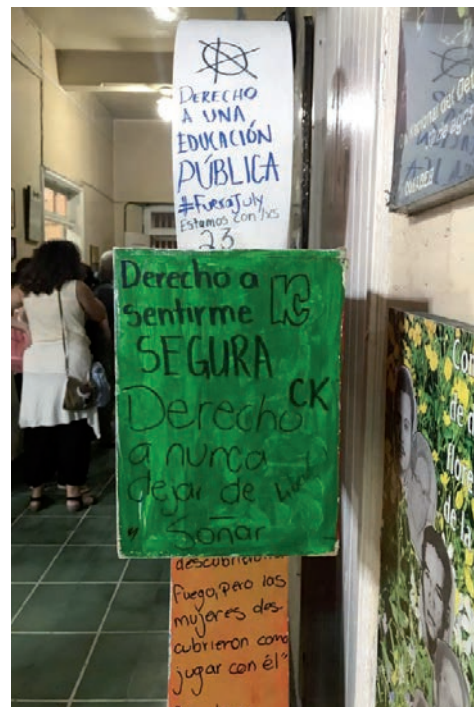 DERECHO
A UNA
EDUCACIÓN
PÚBLICA
#FueraJuly
Estamos con lxs
23
Derecho a
sentirme
SEGURA
Derecho CK
a nunca
dejar de
y Soñar
descubrieron
fuego, pero las
mujeres des-
cubrieron como
jugar con él"
Con
de
flore
de la